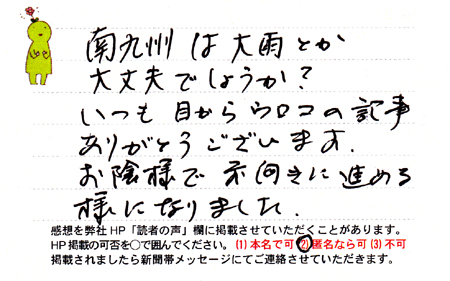 南九州は大雨とか
大丈夫でしょうか?
いつも目からウロコの記事
ありがとうございます.
お陰様で前向きに進める
様になりました.
感想を弊社HP「読者の声」欄に掲載させていただくことがあります。
HP掲載の可否を○で囲んでください。(1)本名で可 (2)匿名なら可 (3)不可
掲載されましたら新聞帯メッセージにてご連絡させていただきます。